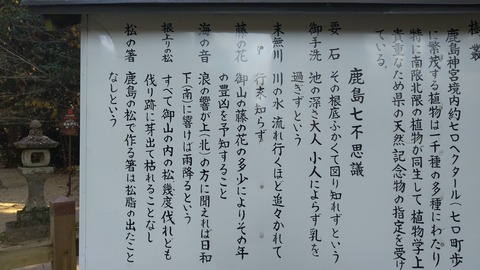 樹叢
鹿島神宮境内約七〇ヘクタール(七〇町歩)
に繁茂する植物は一千種の多種にわたり
特に南限北限の植物が同生して、植物学上
貴重なため県の天然記念物の指定を受け
ている。
鹿島七不思議
要石 その根底ふかくて図り知れずという
御手洗 池の深さ大人 小人によらず乳を
過ぎずという
末無川 川の水 流れ行くほど追々かれて
行末 知らず
藤の花 御山の藤の花の多少によりその年
の豊凶を予知すること
海の音 浪の響が上(北)の方に聞えれば日和
下(南)に響けば雨降るという
根上りの松 すべて御山の内の松幾度伐れども
伐り跡に芽出て枯れることなし
松の箸 鹿島の松で作る箸は松脂の出たこと
なしという